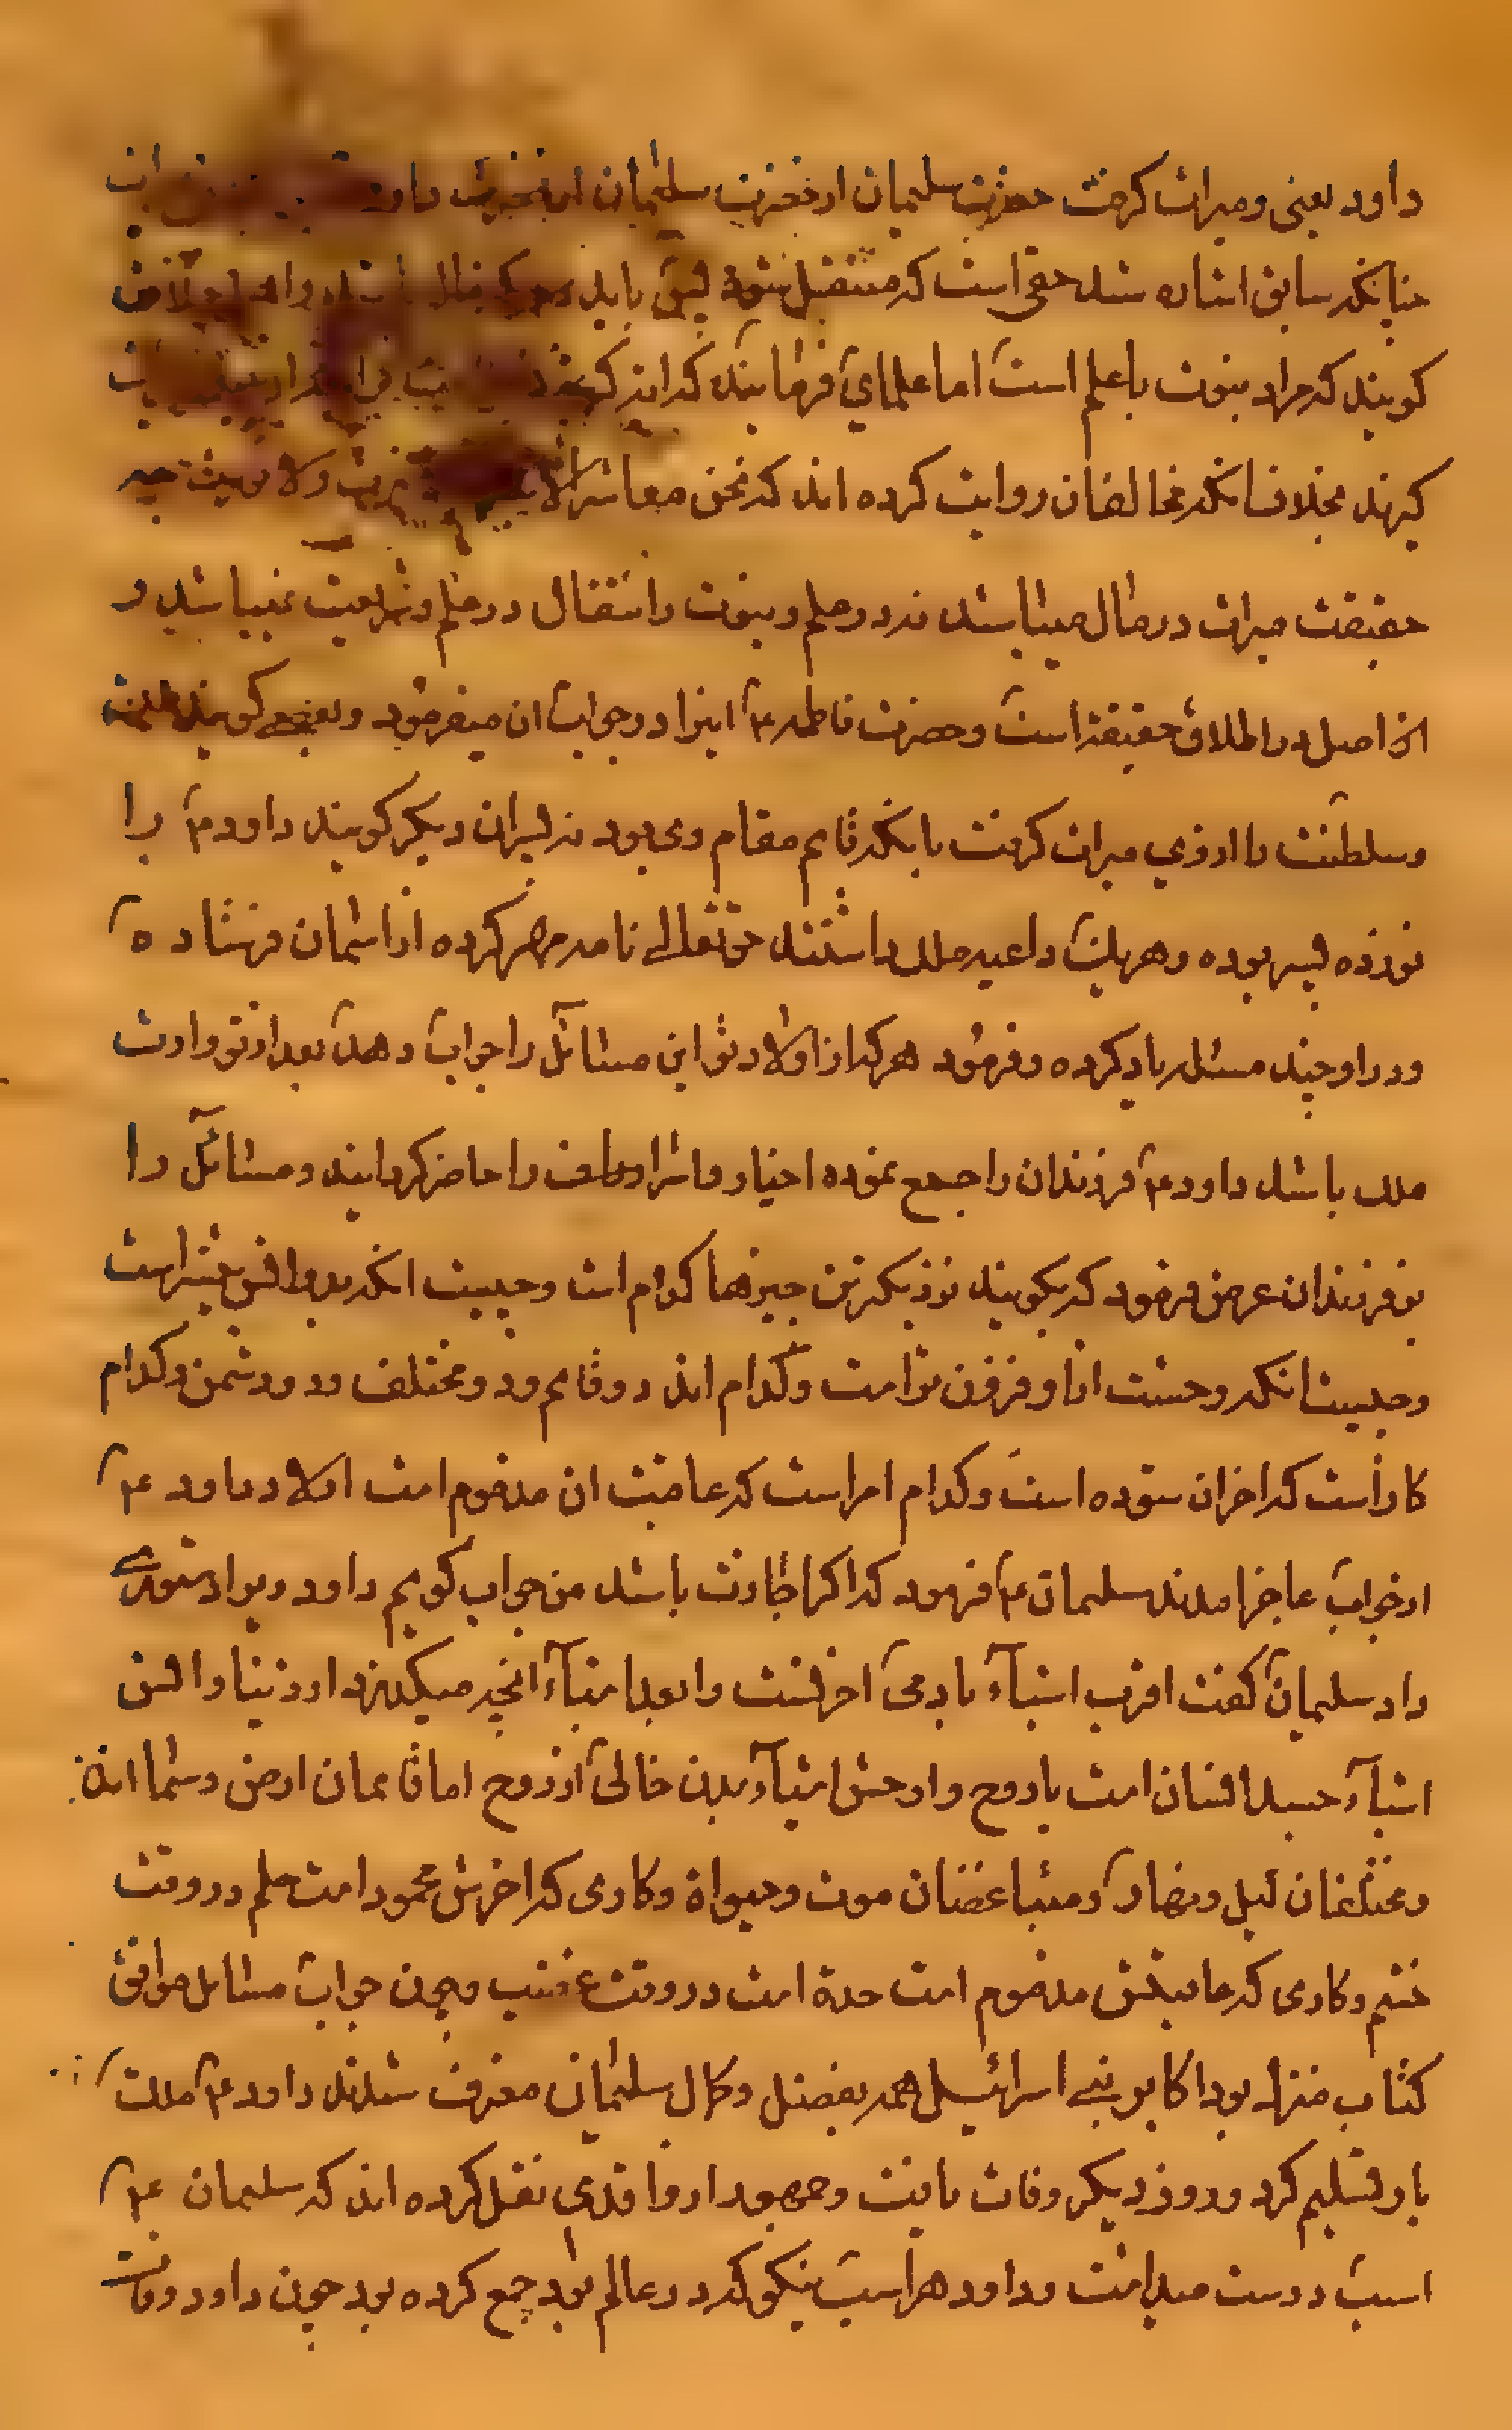 داود یعنی ومیراث کرفت حضرت سلیمان ازحضرت سلیمان ازحضرت داود
چنانکه سابق اشاره شد حقی است که منتقل شود پس باید که مال باشد واهل خلاف
کویند که مراد نبوت یا علم است اما علمای فرمایند که
کیرند بخلاف انکه مخالفان روایت کرده اند که نحن معاشر الانبیاء لا نرث ولا نورث چه
حقیقت میراث درمال میباشد نه درعلم ونبوت وانتقال درعلم وشریعت نمیباشد و
اصل دراطلاق حقیقة است وحضرت فاطمه ع اینرا درجواب ان میفرمود وبعضی کویند علم
وسلطنت را ازوی میراث کرفت بانکه قایم مقام وی بود نه پسران دیکر کویند داود ع را
نوزده پسر بوده وهریک داعیه ملک داشتند حقتعالی نامه مهر کرده ازاسمان فرستاده
ودراو چند مسئله یاد کرده وفرمود هرکه ازاولاد تو این مسائل را جواب دهد بعد ازتو وارث
ملک باشد داود ع فرزندان را جمع نموده احبار واشراف را حاضر کردانید ومسائل را
بر فرزندان عرض فرمود که بکویند نزدیکترین چیزها کدام است وچیست انکه بدو انس بیشتراست
وچیست انکه وحشت ازاو فزون تراست وکدام اند دو قایم ودو مختلف ودو دشمن وکدام
کاراست که اخران ستوده است وکدام امراست که عاقبت ان مذموم است اولاد داود ع
ازجواب عاجز امدند سلیمان ع فرمود که اکر اجازت باشد من جواب کویم داود ویرا دستوری
داد سلیمان کفت اقرب اشیآء بادمی اخرتست وابعد اشیآء انچه میکذرد ازدنیا وانس
اشیآء جسد انسان است باروح واوحش اشیآء بدن خالی ازروح اما قایمان ارض وسما اند
ومختلفان لیل ونهار ومتباغضان موت وحیواة وکاری که اخرش محمود است حلم دروقت
خشم وکاری که عاقبتش مذموم است حدة است دروقت غضب وچون جواب مسائل موافق
کتاب منزله بود اکابر بنی اسرائیل همه بفضل وکمال سلیمان معترف شدند داود ع ملک
باو تسلیم کرد وروز دیکر وفات یافت وجمهور ازواقدی نقل کرده اند که سلیمان ع
اسب دوست میداشت وداود هراسب نیکو که در عالم بود جمع کرده بود چون داود وفات